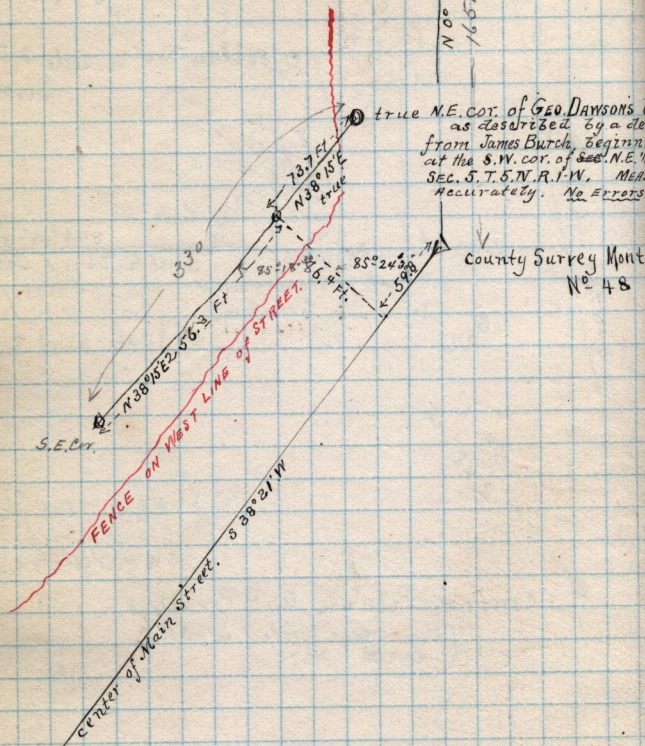 N 0°
165
true N.E. cor. of GEO. DAWSON'S
as described by a de
from James Burch, beginn
at the S.W. cor. of SEC. N.E.
SEC. 5. T. 5. N. R. 1. W. MEA
Accurately. No Errors
73.7 Ft
N 38° 15' E
true
330
85° 24'
59.8
46.4 Ft.
County Survey Mont
No 48
N 38° 15' E 256.3 Ft
S.E. Cor.
FENCE ON WEST LINE of STREET.
S 38° 21' W
center of Main Street.